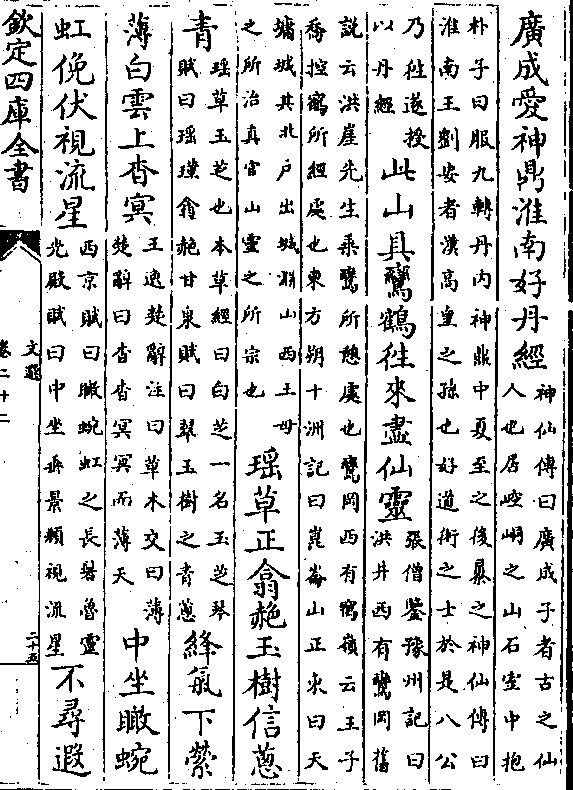 廣成愛神鼎淮南好丹經
神仙傳曰廣成子者古之仙
人也居崆峒之山石室中抱
朴子曰服九轉丹内神鼎中夏至之後暴之神仙傳曰
淮南王劉安者漢高皇之孫也好道術之士於是八公
乃往遂授
以丹經
此山具鸞鶴往來盡仙靈
張僧鑒豫州記曰
洪井西有鸞岡舊
説云洪崖先生乘鸞所憩處也鸞岡西有鶴嶺云王子
喬控鶴所經處也東方朔十洲記曰崑崙山正東曰天
墉城其北户出城淵山西王母
之所治真官山靈之所宗也
瑶草正翕赩玉樹信葱
青
瑶草玉芝也本草經曰白芝一名玉芝琴
賦曰瑶瑾翕赩甘泉賦曰翠玉樹之青葱
絳氣下縈
薄白雲上杳冥
王逸楚辭注曰草木交曰薄
楚辭曰杳杳冥冥而薄天
中坐瞰蜿
虹俛伏視流星
西京賦曰瞰蜿虹之長鬐魯靈
光殿賦曰中坐垂景頫視流星
不尋遐
欽定四庫全書
文選
卷二十二
二十五